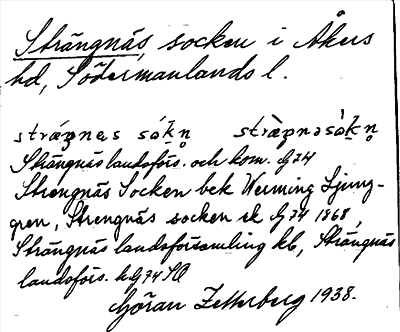 Strängnäs, socken i Åkers
hd, Södermanlands l.
strǽŋnɛs sókn̥ strɛ̀ŋnəsókn̥
Strängnäs landsförs. och kom. G74
Strengnäs Socken bek Werming Ljung-
gren, Strengnäs socken ek G74 1868,
Strängnäs landsförsamling kb, Strängnäs
landsförs. k G74 SO
Göran Zetterberg 1938.